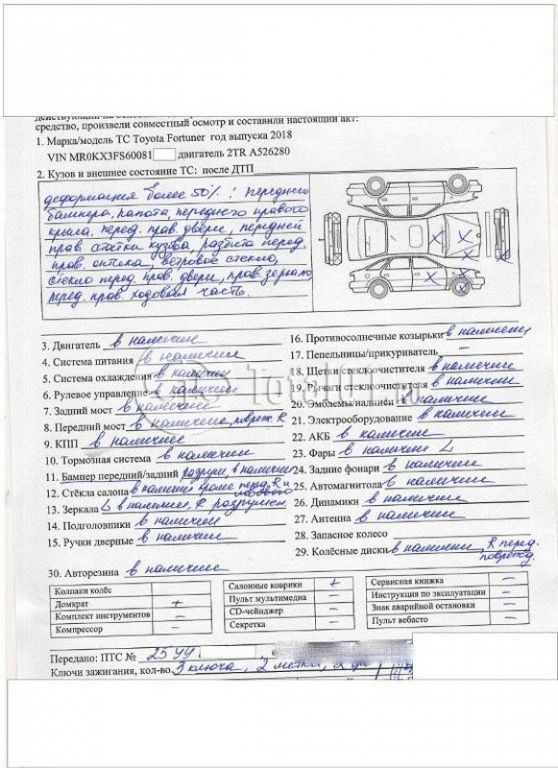 средство, произвели совместный осмотр и составили настоящий акт:
1. Марка/модель ТС Toyota Fortuner год выпуска 2018
VIN MR0KX3FS60081 двигатель 2TR A526280
2. Кузов и внешнее состояние ТС: после ДТП
деформация более 50% : переднего
бампера, капота, переднего правого
крыла, перед. прав. двери, передней
прав. стойки кузова, разбита перед.
прав. оптика, ветровое стекло,
стекло перед. прав. двери, прав. зеркало
перед. прав. ходовая часть.
3. Двигатель в наличии
4. Система питания в наличии
5. Система охлаждения в наличии
6. Рулевое управление в наличии
7. Задний мост в наличии
8. Передний мост в наличии, повреж. R
9. КПП в наличии
10. Тормозная система в наличии
11. Бампер передний/задний разруш, в наличии
12. Стёкла салона в наличии кроме перед. R и лобового
13. Зеркала L в наличии, R разрушен
14. Подголовники в наличии
15. Ручки дверные в наличии
16. Противосолнечные козырьки в наличии
17. Пепельницы/прикуриватель –
18. Щетки стеклоочистителя в наличии
19. Рычаги стеклоочистителя в наличии
20. Эмблемы/надписи в наличии
21. Электрооборудование в наличии
22. АКБ в наличии
23. Фары в наличии L
24. Задние фонари в наличии
25. Автомагнитола в наличии
26. Динамики в наличии
27. Антенна в наличии
28. Запасное колесо
29. Колёсные диски в наличии, R перед. поврежд.
30. Авторезина в наличии
Колпаки колёс
Домкрат +
Комплект инструментов –
Компрессор –
Салонные коврики +
Пульт мультимедиа –
CD-чейнджер –
Секретка –
Сервисная книжка –
Инструкция по эксплуатации –
Знак аварийной остановки –
Пульт вебасто –
Передано: ПТС № 25УУ
Ключи зажигания, кол-во 3 ключа, 2 метки,